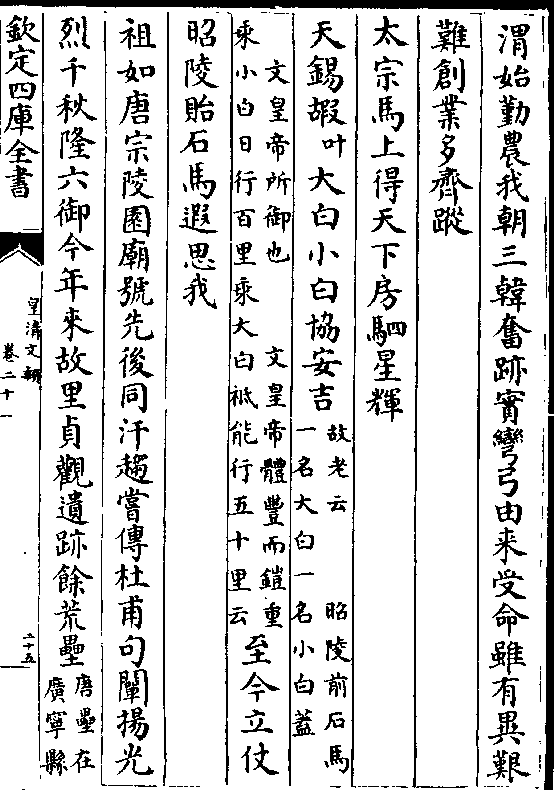 渭始勤農我朝三韓奮跡實彎弓由来受命雖有異艱
難創業多齊蹤
太宗馬上得天下房駟星輝
天錫嘏叶大白小白協安吉故老云 昭陵前石馬
一名大白一名小白蓋
文皇帝所御也 文皇帝體豐而鎧重
乘小白日行百里乘大白祗能行五十里云至今立仗
昭陵貽石馬遐思我
祖如唐宗陵園廟號先後同汗趨嘗傳杜甫句闡揚光
烈千秋隆六御今年来故里貞觀遺跡餘荒壘唐壘在
廣寧縣
欽定四庫全書
皇清文穎
卷二十一
二十五